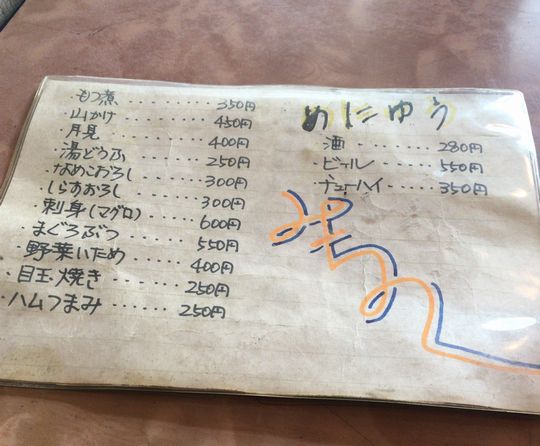 ・もつ煮・・・・・・・・・350円
・山かけ・・・・・・・・450円
・月見・・・・・・・・・・400円
・湯どうふ・・・・・・・250円
・なめこおろし・・・・・300円
・しらすおろし・・・・・300円
・刺身(マグロ)・・・・600円
・まぐろぶつ・・・・・・550円
・野菜いため・・・・・・400円
・目玉焼き・・・・・・・250円
・ハムつまみ・・・・・・250円
めにゅう
・酒・・・・・・・280円
・ビール・・・・・550円
・チューハイ・・・・350円